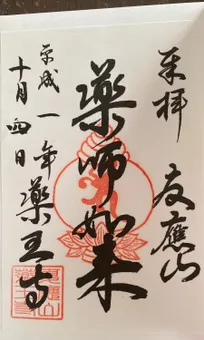 奉拝
友應山
薬師如来
平成一年
十月四日
薬王寺